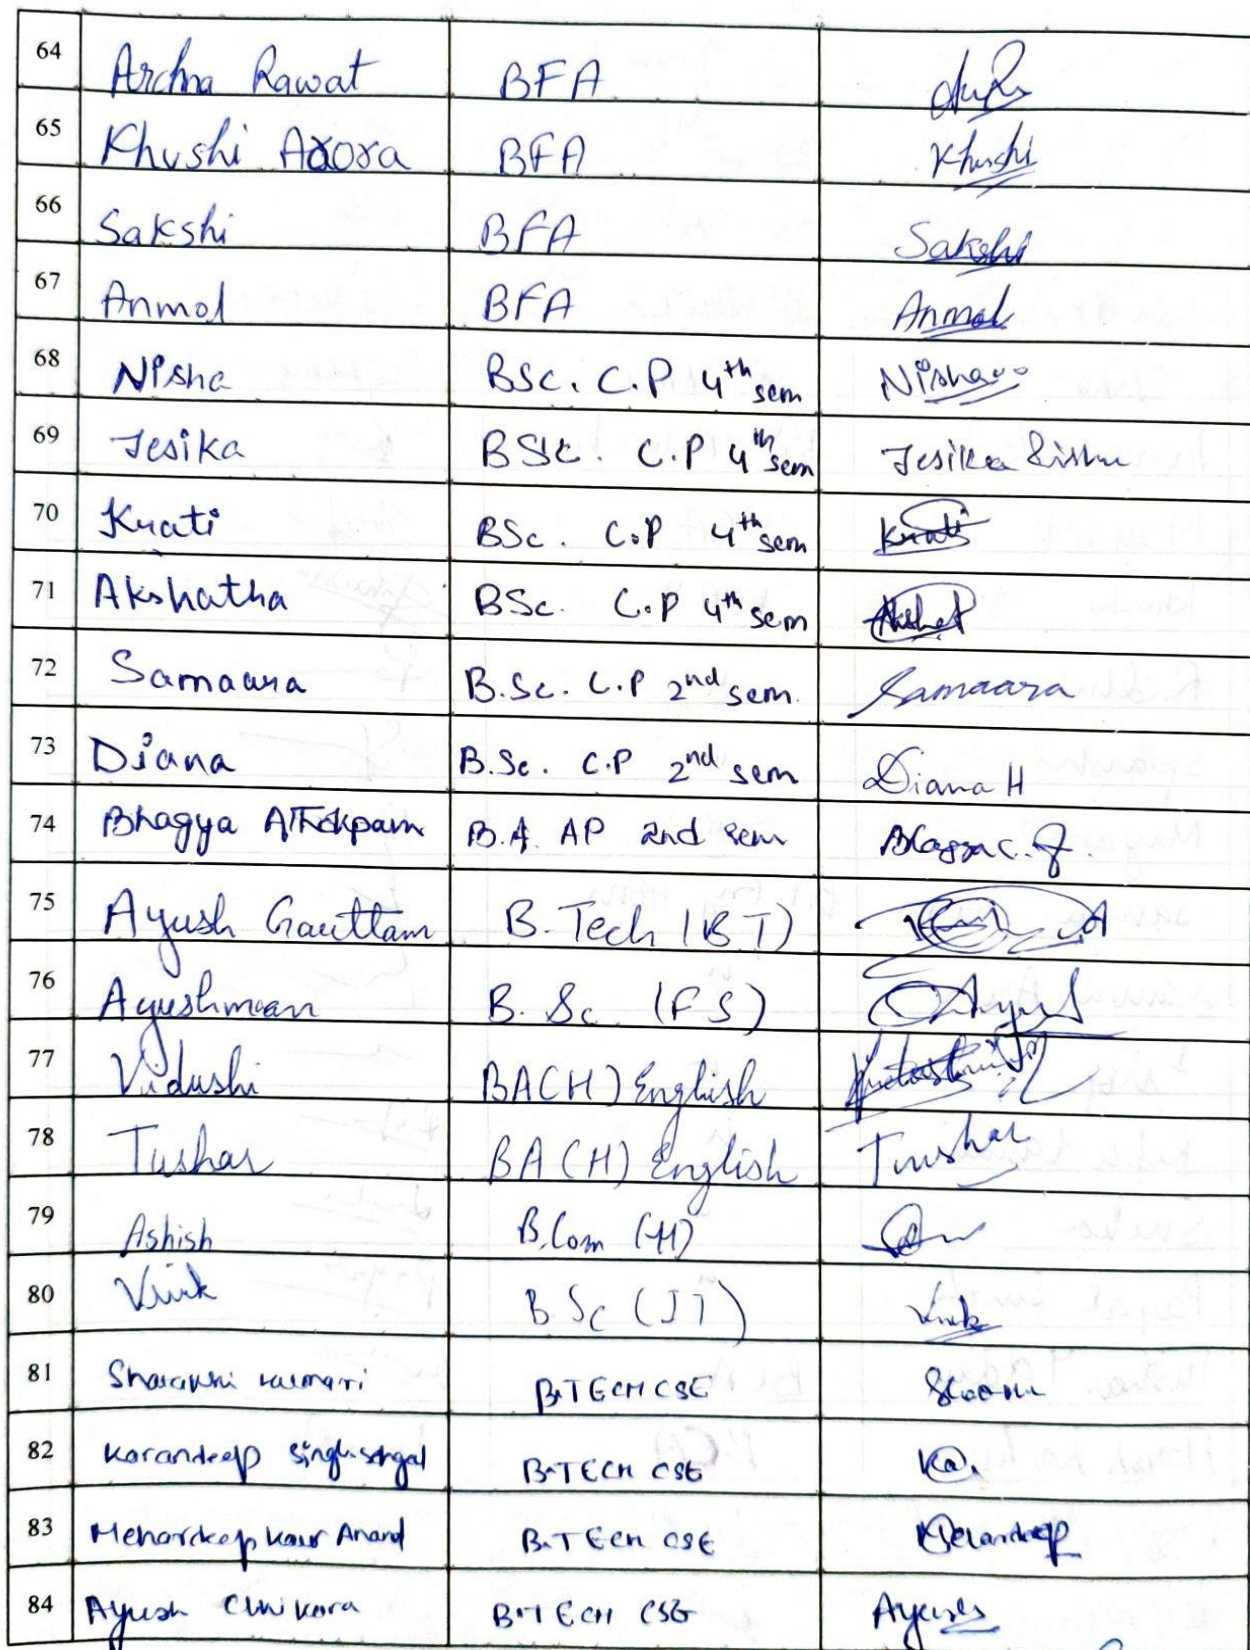 64 Archna Rawat BFA
65 Khushi Arora BFA Khushi
66 Sakshi BFA Sakshi
67 Anmol BFA Anmol
68 Nisha BSc. C.P 4th sem Nisha
69 Jesika BSc. C.P 4th sem Jesika
70 Krati BSc. C.P 4th sem Krati
71 Akshatha BSc. C.P 4th sem
72 Samaara B.Sc. C.P 2nd sem. Samaara
73 Diana B.Sc. C.P 2nd sem Diana H
74 Bhagya Athokpam B.A. AP 2nd sem
75 Ayush Gauttam B. Tech (B.T)
76 Ayushmaan B. Sc (FS)
77 Vidushi BA(H) English
78 Tushar BA(H) English Tushar
79 Ashish B.Com (H)
80 Vivek B.Sc (IT) Vivek
81 kumari B.TECH CSE
82 Karandeep Singh Sehgal B.TECH CSE
83 Mehardeep kaur Anand B.TECH CSE
84 Ayush Chhikara B.TECH CSE Ayush